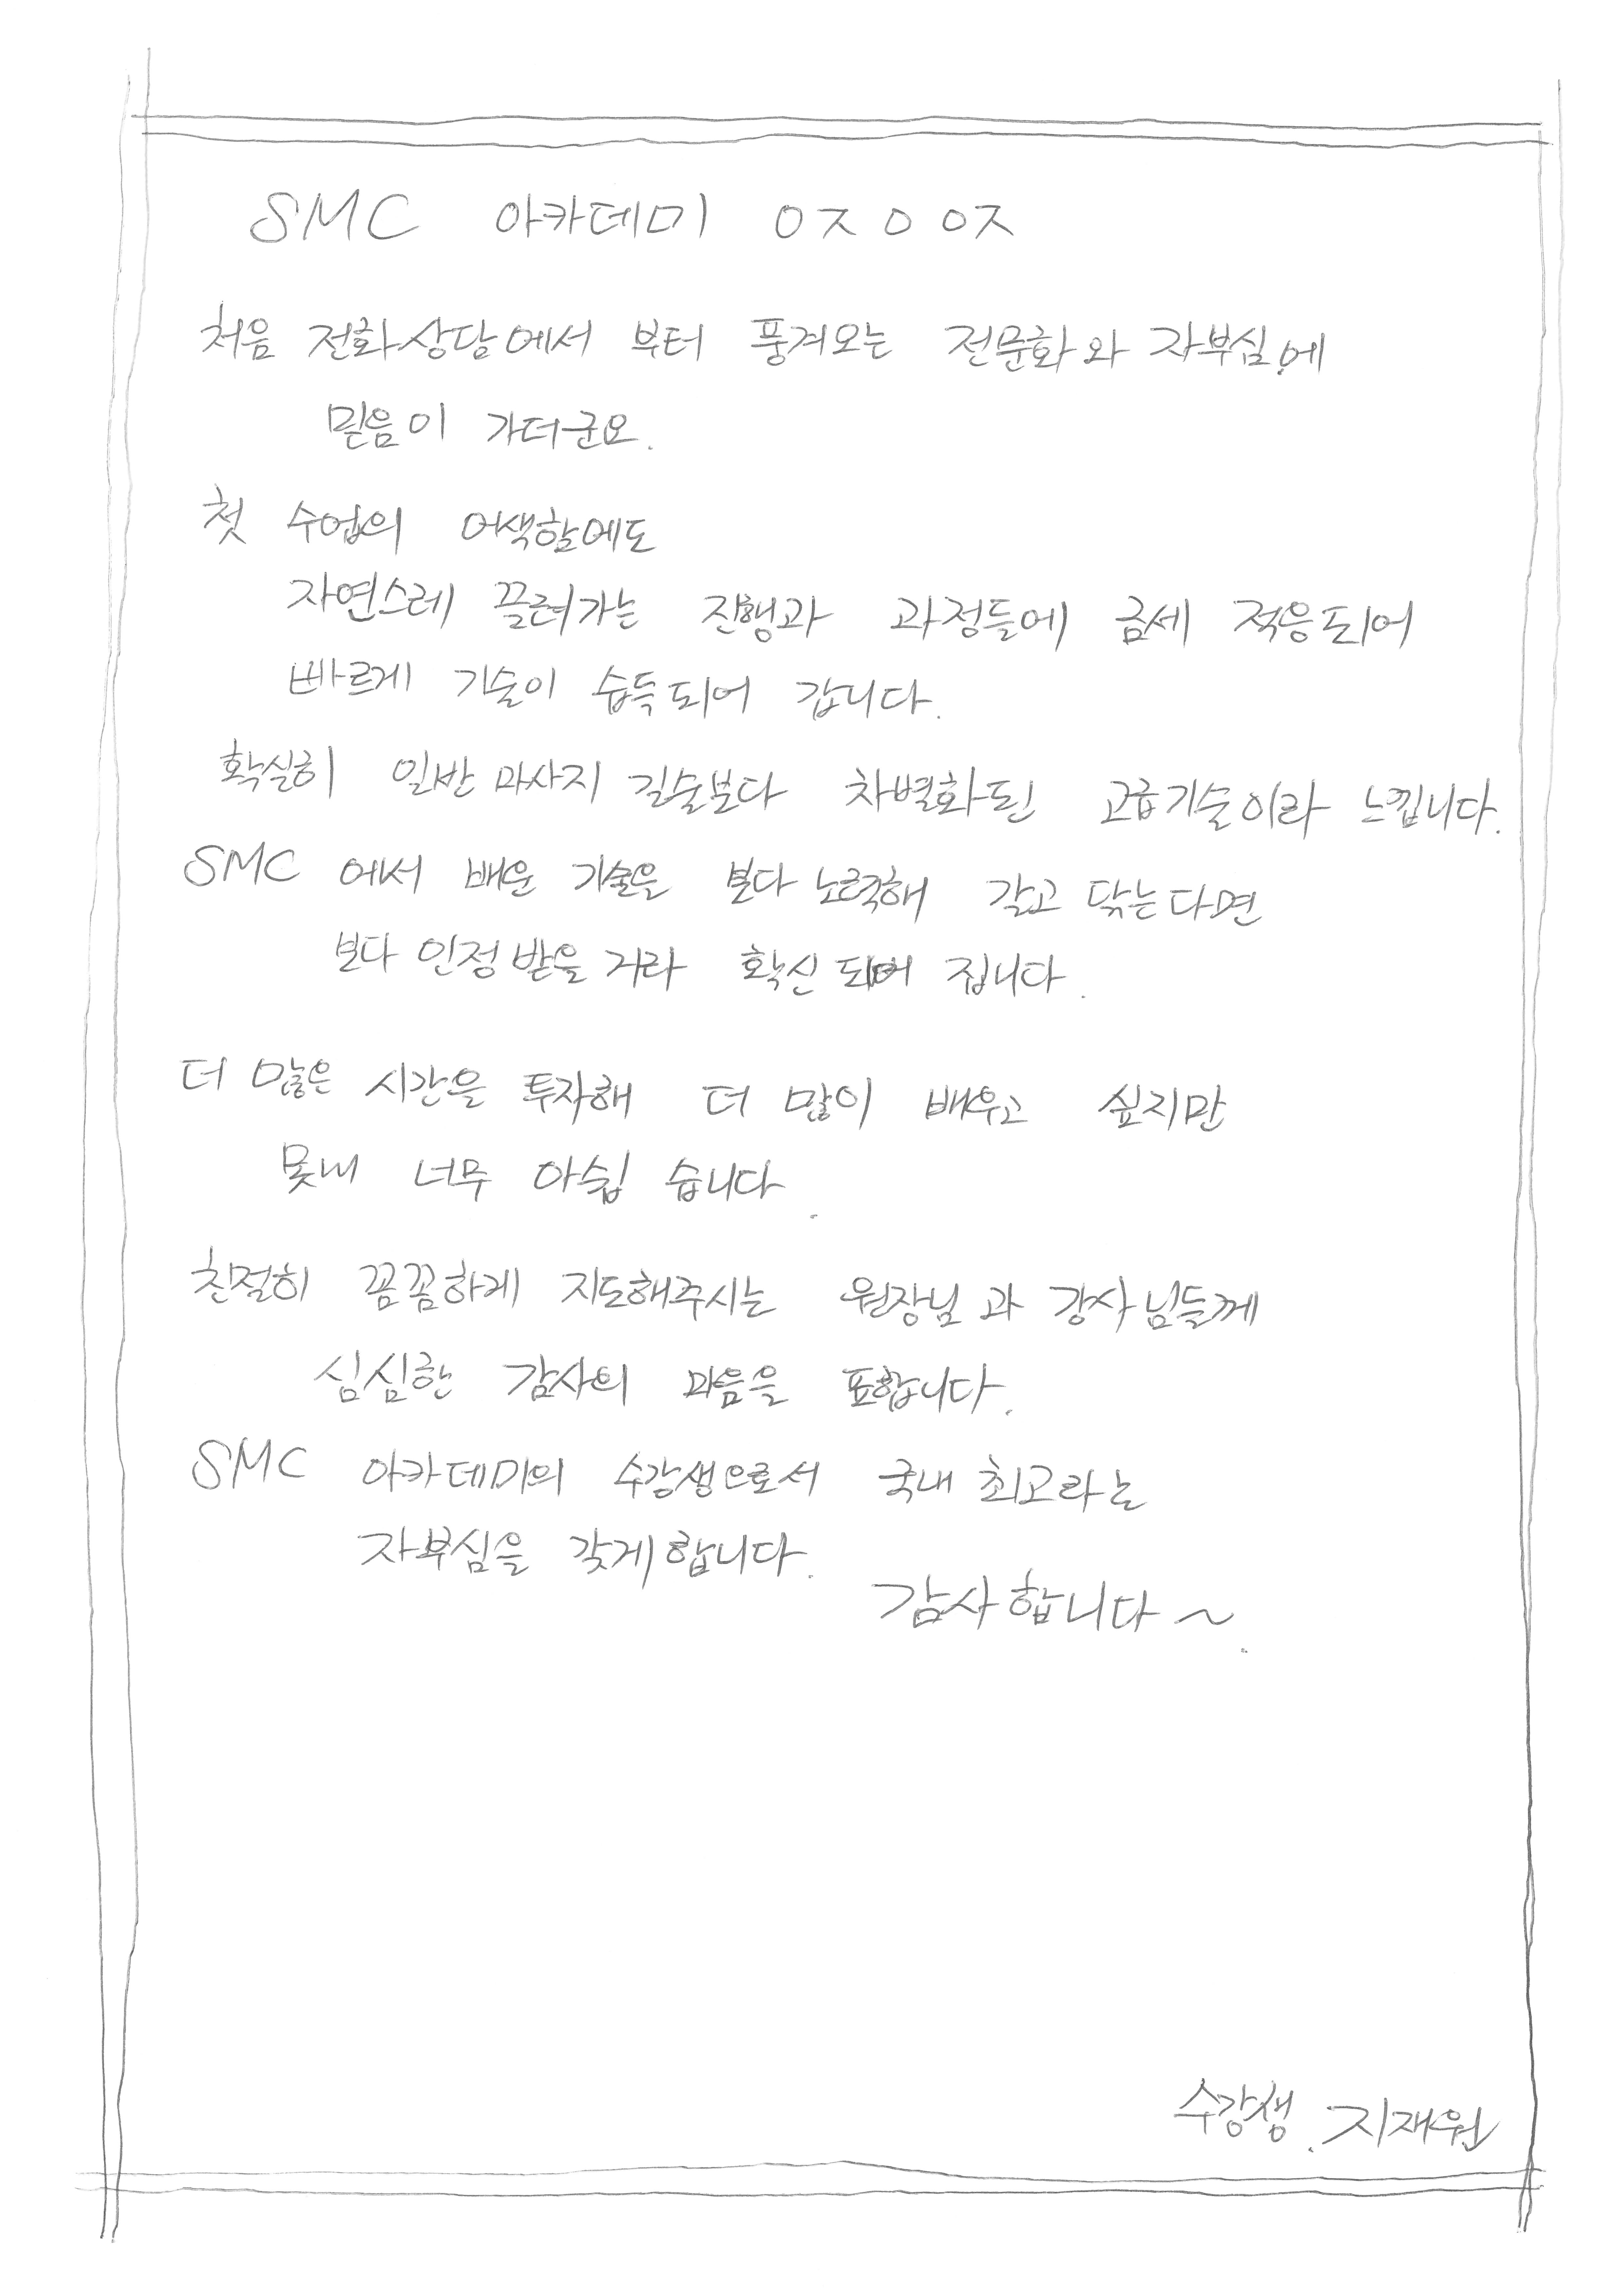 SMC 아카데미 ㅇㅈㅇㅇㅈ
처음 전화상담에서 부터 풍겨오는 전문화와 자부심에
믿음이 가더군요.
첫 수업의 어색함에도
자연스레 끌려가는 진행과 과정들에 금세 적응되어
빠르게 기술이 습득되어 갑니다.
확실히 일반 마사지 길술보다 차별화된 고급기술이라 느낍니다.
SMC 에서 배운 기술을 보다 노력해 갈고 닦는다면
보다 인정 받을 거라 확신 되어 집니다.
더 많은 시간을 투자해 더 많이 배우고 싶지만
못내 너무 아쉽 습니다.
친절히 꼼꼼하게 지도해주시는 원장님 과 강사님들께
심심한 감사의 마음을 표합니다.
SMC 아카데미의 수강생으로서 국내 최고라는
자부심을 갖게합니다.
감사합니다~.
수강생. 지재원